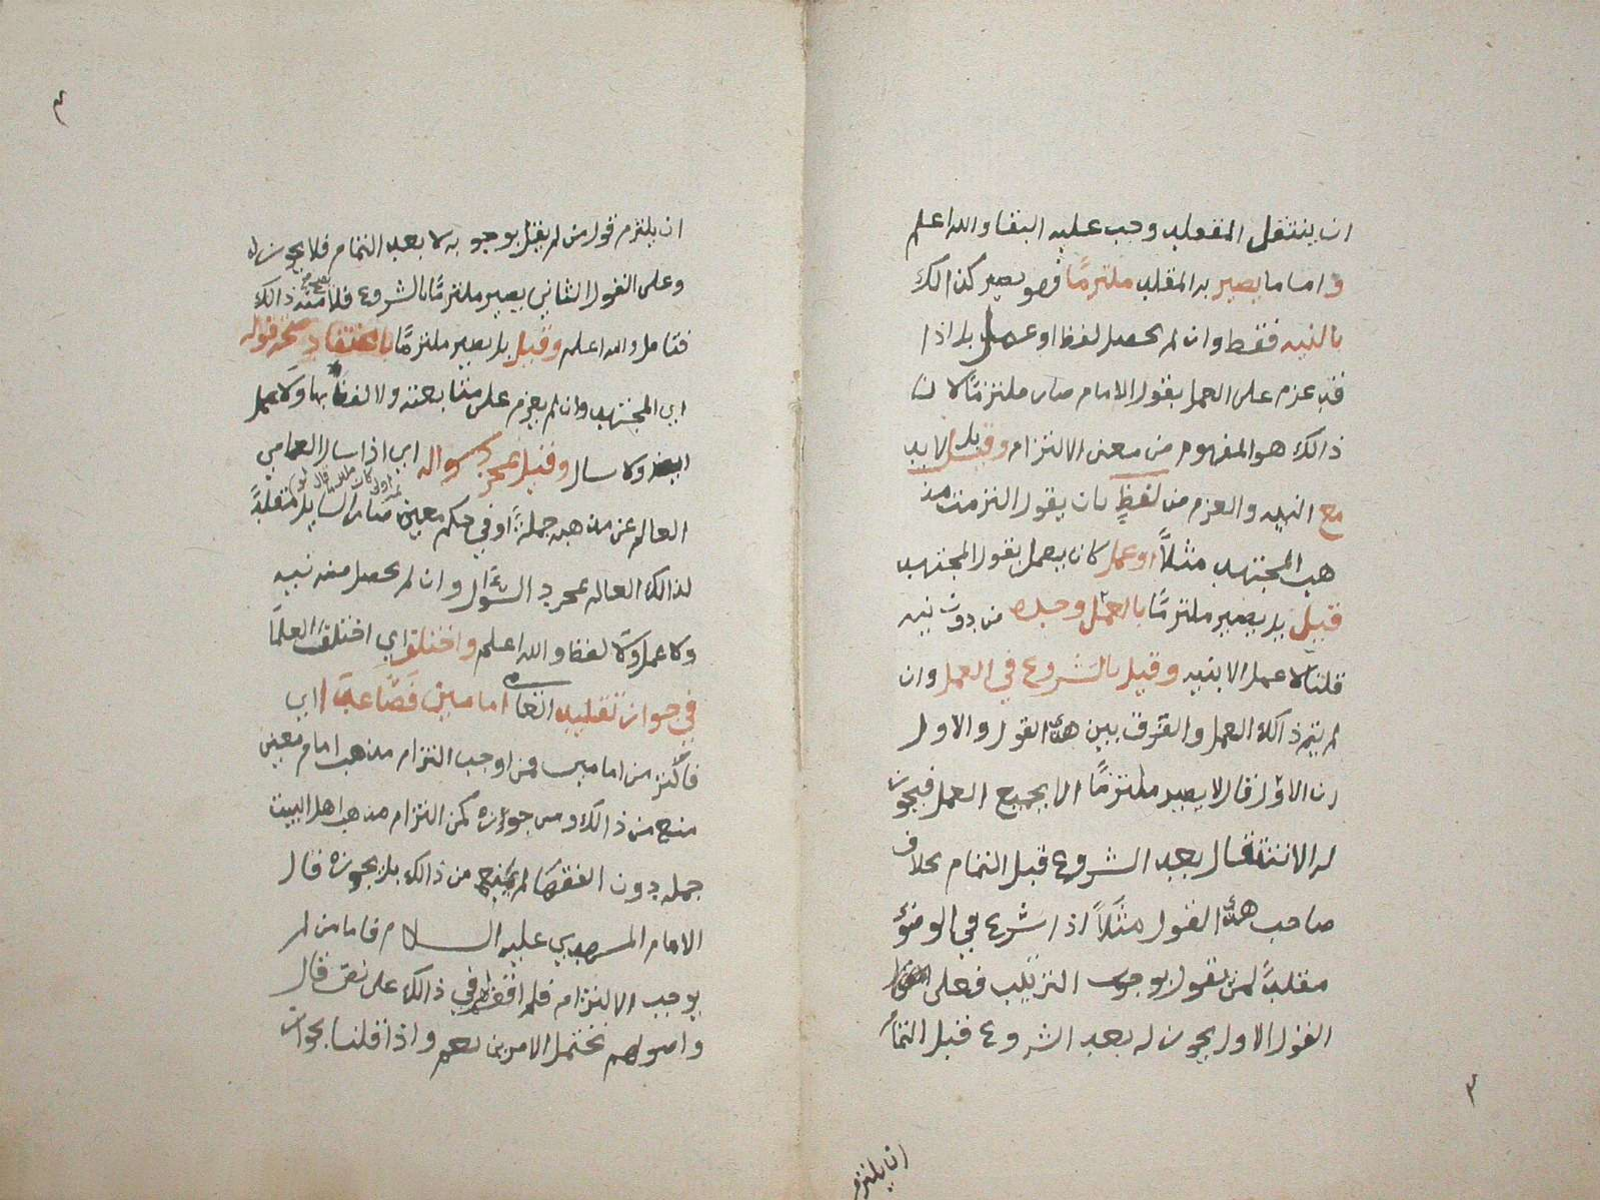 ان ينتقل المقلد وجب عليه البقا والله اعلم
واما ما يصير به المقلد ملتزمًا فهو يصير كذالك
بالنيه فقط وان لم يحصل لفظ او عمل بل اذا
قد عزم على العمل بقول الامام صار ملتزمًا لان
ذالك هو المفهوم من معنى الالتزام وقيل بل لا بد
مع النيه والعزم من لفظٍ بان يقول التزمت مذ
هب المجتهد مثلاً او عمل كان يعمل بقول المجتهد
قيل بل يصير ملتزمًا بالعمل وحده من دون نيه
قلنا لا عمل الا بنيه وقيل بالشروع في العمل وان
لم يتم ذالك العمل والفرق بين هذا القول والاول
ان الاول قال لا يصير ملتزمًا الا بجميع العمل فيجوز
له الانتقال بعد الشروع قبل التمام بخلاف
صاحب هذا القول مثلاً اذا شرع في الوضوء
مقلدًا لمن يقول بوجوب الترتيب فعلى
القول الاول يجوز له بعد الشروع قبل التمام
٣
ان يلتزم
٤
ان يلتزم قول من لم يقل بوجوبه لا بعد التمام فلا يجوز له
وعلى القول الثاني يصير ملتزمًا بالشروع فلا يصح منه ذالك
فتامل والله اعلم وقيل بل يصير ملتزمًا باعتقاد صحة قوله
اي المجتهد وان لم يعزم على متابعته ولا لفظ بها ولا عمل
ولا سال وقيل بمجرد سواله اي اذا سال العامي
العالم عن مذهبه جملةً او في حكم معين صار السايل مقلدًا
لذالك العالم بمجرد السؤال وان لم يحصل منه نيه
ولا عمل ولا لفظ والله اعلم واختلف اي اختلف العلما
في جواز تقليد امامين فصاعدًا اي
فاكثر من امامين فمن اوجب التزام مذهب امام معين
منع من ذالك ومن جوزه كمن التزام مذهب اهل البيت
جمله دون الفقها لم يمنع من ذالك بل يجوزه قال
الامام المهدي عليه السلام فاما من لم
يوجب الالتزام فلم اقف لهم في ذالك على نص قال
واصولهم تحتمل الامرين نعم واذا قلنا بجواز